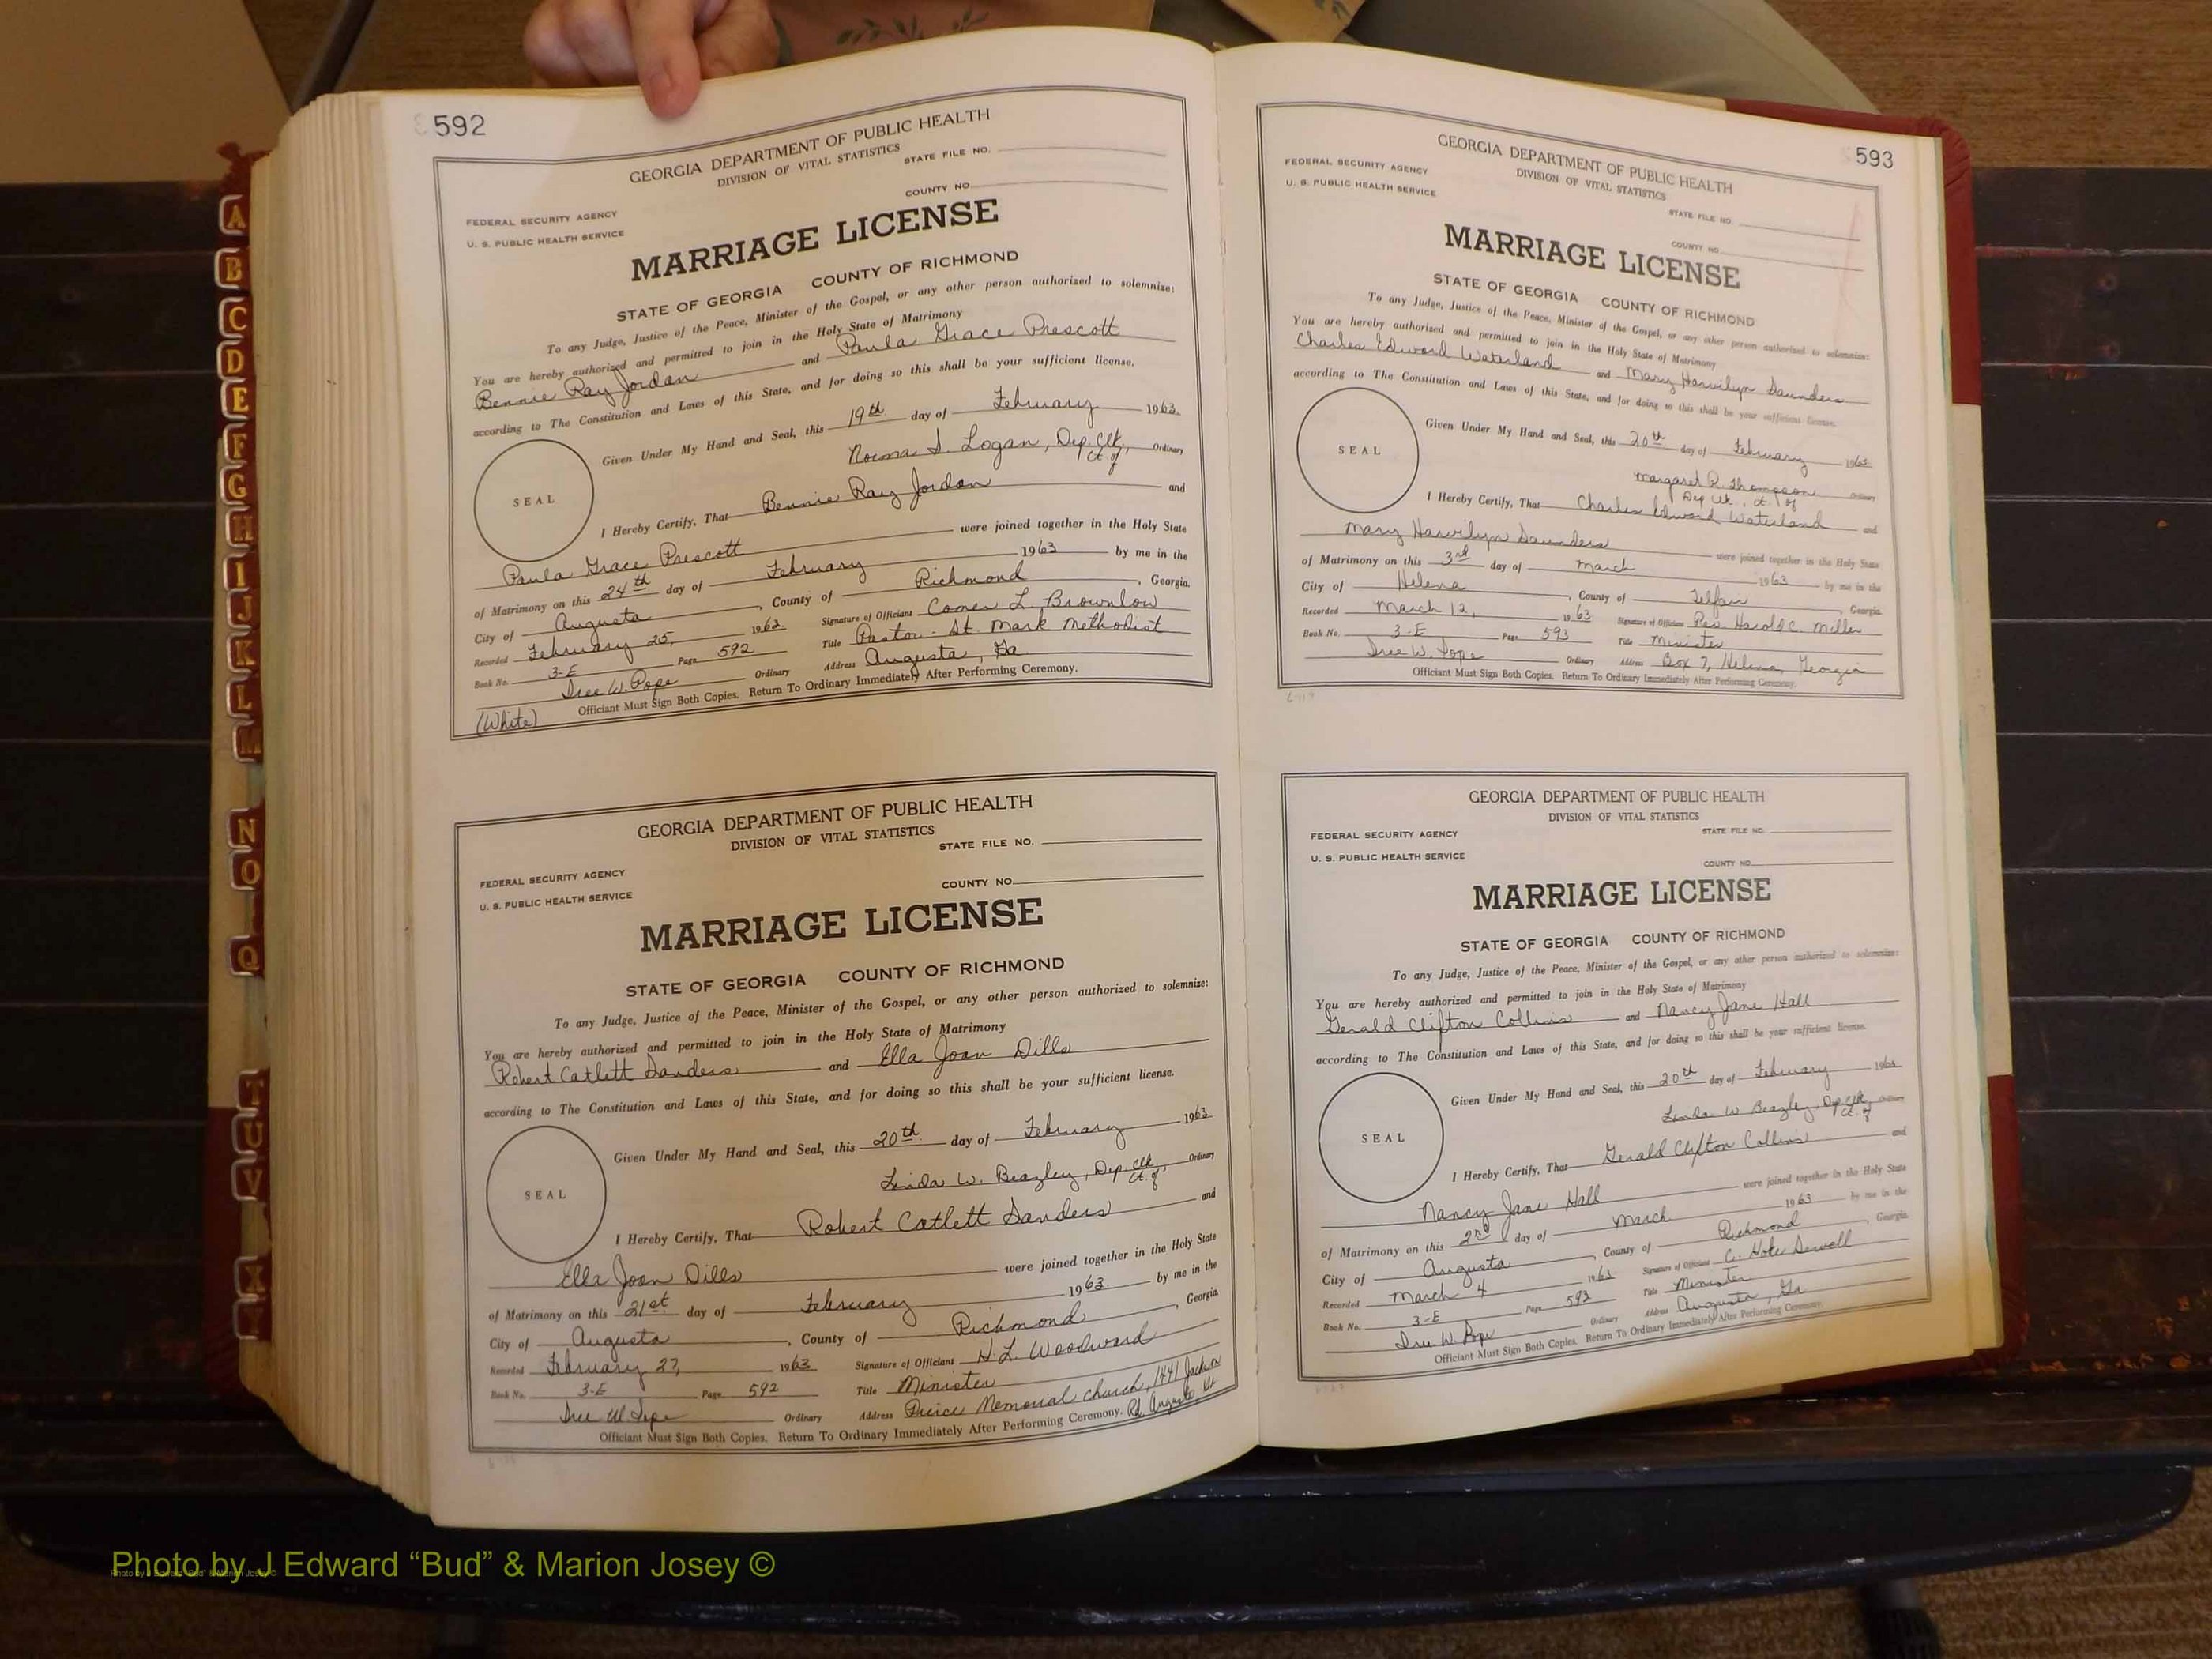 592
GEORGIA DEPARTMENT OF PUBLIC HEALTH
DIVISION OF VITAL STATISTICS
STATE FILE NO.
COUNTY NO.
FEDERAL SECURITY AGENCY
U. S. PUBLIC HEALTH SERVICE
MARRIAGE LICENSE
STATE OF GEORGIA COUNTY OF RICHMOND
To any Judge, Justice of the Peace, Minister of the Gospel, or any other person authorized to solemnize:
You are hereby authorized and permitted to join in the Holy State of Matrimony
Bennie Ray Jordan and Paula Grace Prescott
according to The Constitution and Laws of this State, and for doing so this shall be your sufficient license.
Given Under My Hand and Seal, this 19th day of February 1963.
Norma S. Logan, Dep. Clk. Ct. of Ordinary
SEAL
I Hereby Certify, That Bennie Ray Jordan and
Paula Grace Prescott were joined together in the Holy State
of Matrimony on this 24th day of February 1963 by me in the
City of Augusta, County of Richmond, Georgia.
Recorded February 25, 1963 Signature of Officiant Comer L. Brownlow
Book No. 3-E Page 592 Title Pastor - St. Mark Methodist
Iree W. Pope Ordinary Address Augusta, Ga
Officiant Must Sign Both Copies. Return To Ordinary Immediately After Performing Ceremony.
(White)
GEORGIA DEPARTMENT OF PUBLIC HEALTH
DIVISION OF VITAL STATISTICS
STATE FILE NO.
FEDERAL SECURITY AGENCY
COUNTY NO.
U. S. PUBLIC HEALTH SERVICE
MARRIAGE LICENSE
STATE OF GEORGIA COUNTY OF RICHMOND
To any Judge, Justice of the Peace, Minister of the Gospel, or any other person authorized to solemnize:
You are hereby authorized and permitted to join in the Holy State of Matrimony
Robert Catlett Sanders and Ella Joan Dills
according to The Constitution and Laws of this State, and for doing so this shall be your sufficient license.
Given Under My Hand and Seal, this 20th day of February 1963
Linda W. Beazley, Dep. Clk. Ct. of Ordinary
SEAL
I Hereby Certify, That Robert Catlett Sanders and
Ella Joan Dills were joined together in the Holy State
of Matrimony on this 21st day of February 1963 by me in the
City of Augusta, County of Richmond, Georgia.
Recorded February 27, 1963 Signature of Officiant H. L. Woodward
Book No. 3-E Page 592 Title Minister
Iree W. Pope Ordinary Address Pierce Memorial Church, 1441 Jackson Rd. Augusta Ga
Officiant Must Sign Both Copies. Return To Ordinary Immediately After Performing Ceremony.
593
GEORGIA DEPARTMENT OF PUBLIC HEALTH
DIVISION OF VITAL STATISTICS
FEDERAL SECURITY AGENCY
U. S. PUBLIC HEALTH SERVICE
STATE FILE NO.
COUNTY NO.
MARRIAGE LICENSE
STATE OF GEORGIA COUNTY OF RICHMOND
To any Judge, Justice of the Peace, Minister of the Gospel, or any other person authorized to solemnize:
You are hereby authorized and permitted to join in the Holy State of Matrimony
Charles Edward Waterland and Mary Harvilyn Saunders
according to The Constitution and Laws of this State, and for doing so this shall be your sufficient license.
Given Under My Hand and Seal, this 20th day of February 1963
Margaret R. Thompson Dep Clk, Ct. of Ordinary
SEAL
I Hereby Certify, That Charles Edward Waterland and
Mary Harvilyn Saunders were joined together in the Holy State
of Matrimony on this 3rd day of March 1963 by me in the
City of Helena, County of Telfair, Georgia.
Recorded March 12, 1963 Signature of Officiant Rev. Harold C. Miller
Book No. 3-E Page 593 Title Minister
Iree W. Pope Ordinary Address Box 7, Helena, Georgia
Officiant Must Sign Both Copies. Return To Ordinary Immediately After Performing Ceremony.
GEORGIA DEPARTMENT OF PUBLIC HEALTH
DIVISION OF VITAL STATISTICS
FEDERAL SECURITY AGENCY STATE FILE NO.
U. S. PUBLIC HEALTH SERVICE
COUNTY NO.
MARRIAGE LICENSE
STATE OF GEORGIA COUNTY OF RICHMOND
To any Judge, Justice of the Peace, Minister of the Gospel, or any other person authorized to solemnize:
You are hereby authorized and permitted to join in the Holy State of Matrimony
Gerald Clifton Collins and Nancy Jane Hall
according to The Constitution and Laws of this State, and for doing so this shall be your sufficient license.
Given Under My Hand and Seal, this 20th day of February 1963
Linda W. Beazley, Dep Clk, Ct. of Ordinary
SEAL
I Hereby Certify, That Gerald Clifton Collins and
Nancy Jane Hall were joined together in the Holy State
of Matrimony on this 2nd day of March 1963 by me in the
City of Augusta, County of Richmond, Georgia.
Recorded March 4 1963 Signature of Officiant C. Hoke Sewell
Book No. 3-E Page 593 Title Minister
Iree W. Pope Ordinary Address Augusta, Ga
Officiant Must Sign Both Copies. Return To Ordinary Immediately After Performing Ceremony.
A
B
C
D
E
F
G
H
I
J
K
L
M
N
O
Q
T
U
V
X
Y
Photo by J Edward “Bud” & Marion Josey ©
Photo by J Edward “Bud” & Marion Josey ©